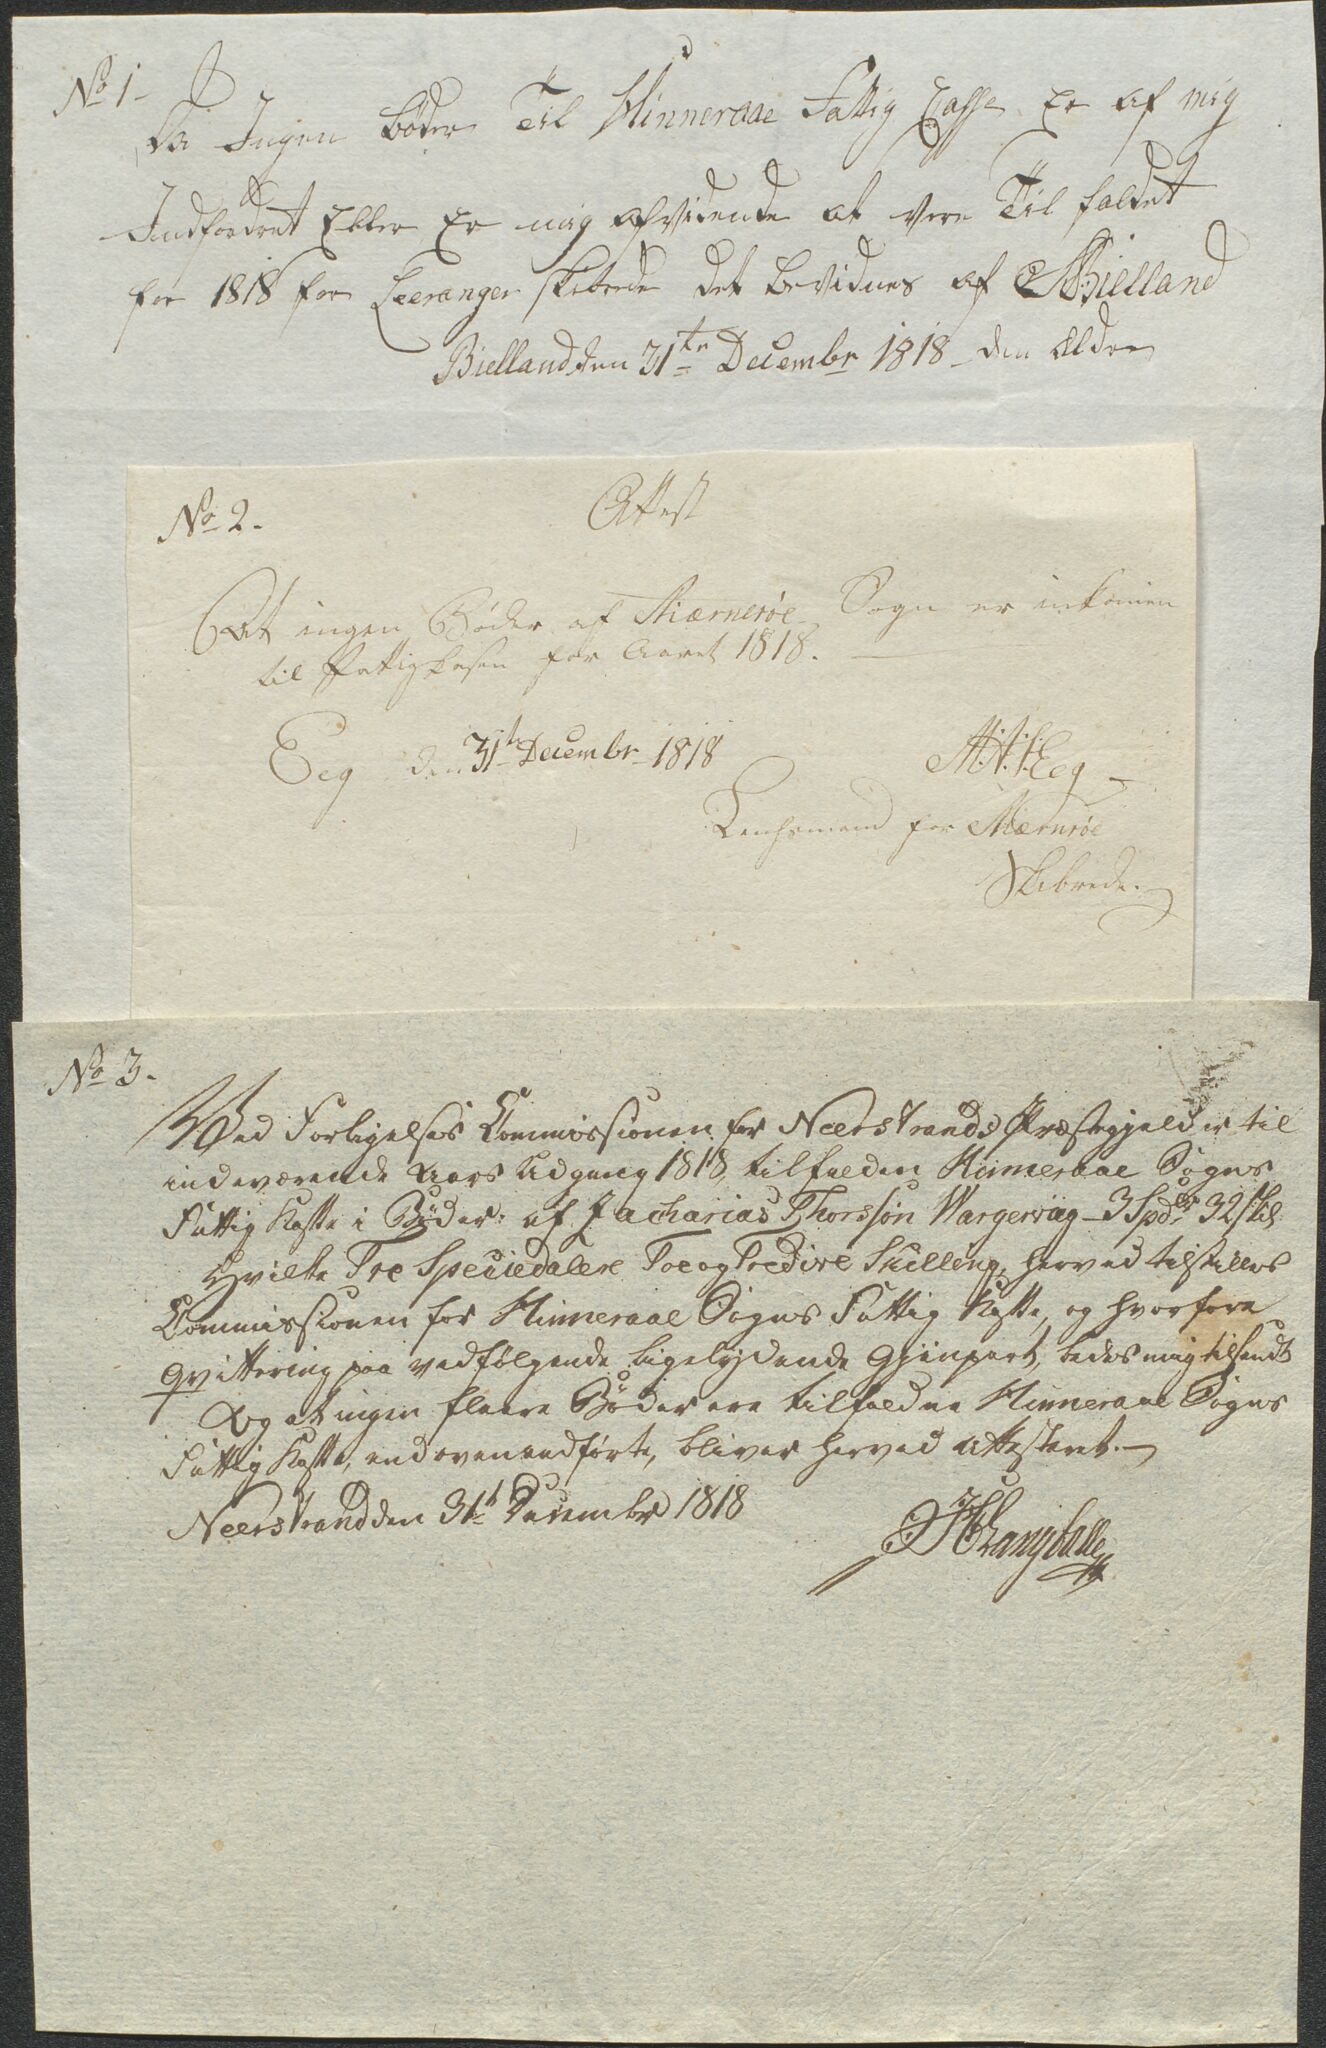 No 1-
Da Ingen Bøder Til Hinneraae Fattig Casse Er af mig
Indfordret Eller Er mig afvidende at være Til faldet
for 1818 for Leeranger skibrede det bevidnes af Bielland
Bielland den 31te Decembr 1818 - den Eldre
No 2.
Attest
At ingen Bøder af Miærnerøe Sogn er inkomen
til Fattigkasen for Aaret 1818.
Eeg den 31te Decembr 1818
Eeg
Lenhsmand for Mærnrøe
Skibrede.
No 3.
Ved Forligelses Commissionen for Neerstrands Præstegjeld er til
indeværende Aars Udgang 1818, tilfalden Hinneraae Sogns
Fattig Kasse i Bøder: af Zacharias Thorssøn Wargervig - 3 Spdlr 32 skil
Hvilke Tre Speciedalere Toe og Tredive Skilling, herved tilstilles
Commissionen for Hinneraae Sogns Fattig Kasse, og hvorfore
Qvittering paa vedfølgende ligelydende Gjenpart, bedes mig tilsendt
Og at ingen fleere Bøder ere tilfaldne Hinneraae Sogns
Fattig Kasse, end ovenanførte, bliver herved attesteret.
Neerstrand den 31te Decembr 1818
Langballe